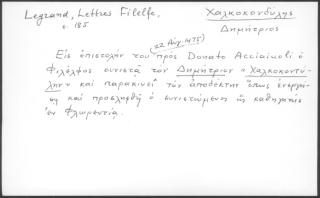 Legrand, Lettres Filelfe,
σ. 185
Χαλκοκονδύλης
Δημήτριος
(22 Αὐγ. 1475)
Εἰς ἐπιστολὴν του πρὸς Donato Acciaiuoli ὁ
Φιλέλφος συνιστᾷ τὸν Δημήτριον "Χαλκοκοντύ-
λην" καὶ παρακινεῖ τὸν ἀποδέκτην ὅπως ἐνεργή-
σῃ καὶ προσληφθῇ ὁ συνιστώμενος ὡς καθηγητὴς
ἐν Φλωρεντίᾳ.